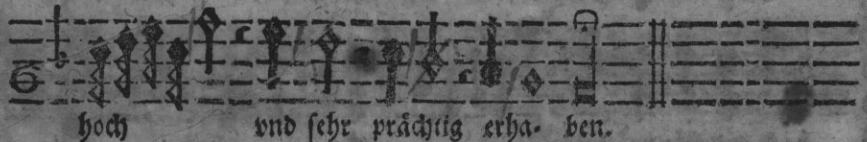 hoch vnd sehr prächtig erha- ben.